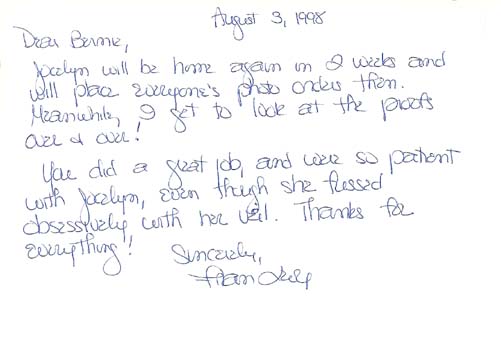 August 3, 1998
Dear Bernie,
Jocelyn will be home again in 2 weeks and
will place everyone's photo orders then.
Meanwhile, I get to look at the proofs
over & over!
You did a great job, and were so patient
with Jocelyn, even though she fussed
obsessively with her veil. Thanks for
everything!
Sincerely,
Fran